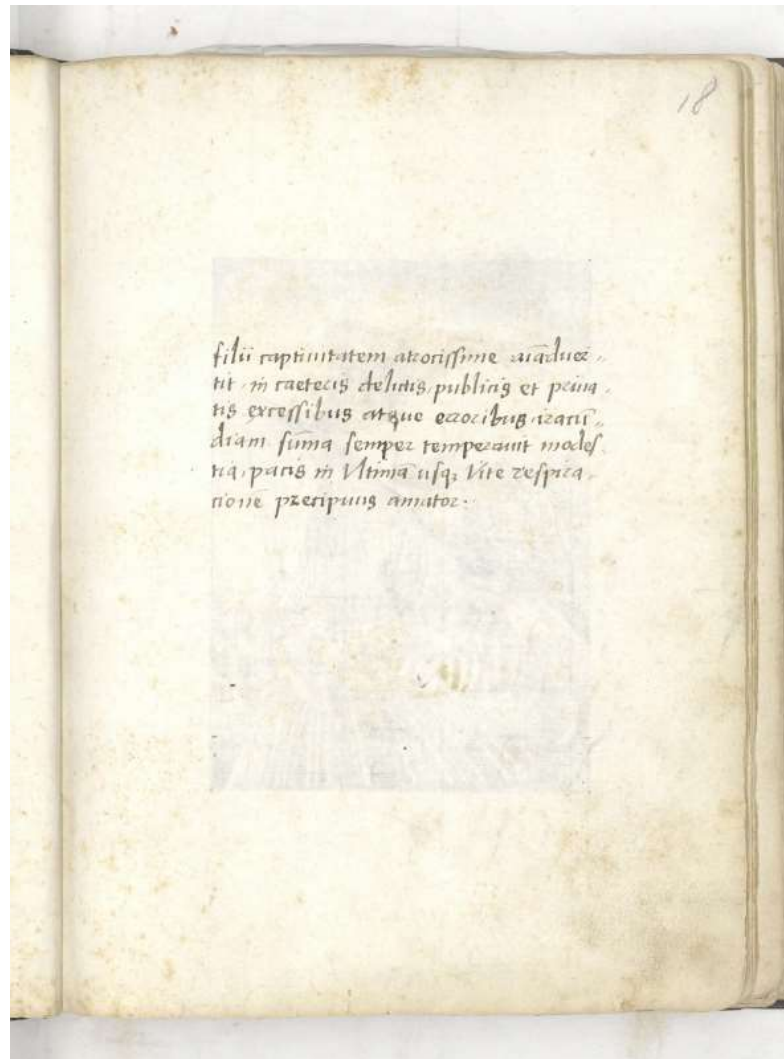 18
filii captiuitatem atrocissime aīaduer„
tit. in caeteris delictis, publicis et priua„
tis excessibus atque erroribus iracū„
diam sūma semper temperauit modes„
tia, pacis in Vltimā usq; Vite respira„
cionē precipuus amator.